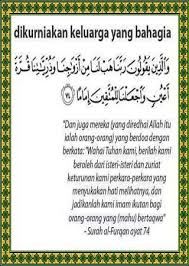 dikurniakan keluarga yang bahagia
وَالَّذِينَ يَقُولُونَ رَبَّنَا هَبْ لَنَا مِنْ أَزْوَاجِنَا وَذُرِّيَّاتِنَا قُرَّةَ
أَعْيُنٍ وَاجْعَلْنَا لِلْمُتَّقِينَ إِمَامًا ﴿٧٤﴾
"Dan juga mereka (yang diredhai Allah itu
ialah orang-orang) yang berdoa dengan
berkata: "Wahai Tuhan kami, berilah kami
beroleh dari isteri-isteri dan zuriat
keturunan kami perkara-perkara yang
menyukakan hati melihatnya, dan
jadikanlah kami imam ikutan bagi
orang-orang yang (mahu) bertaqwa"
- Surah al-Furqan ayat 74